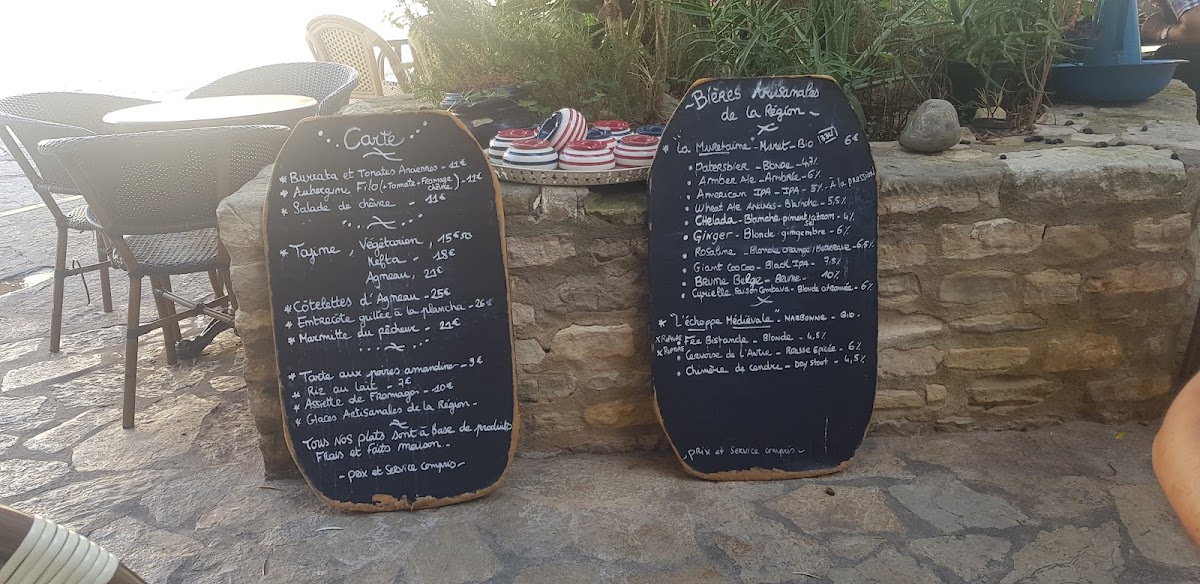 Carte
* Burrata et Tomates Anciennes - 11€
* Aubergine Filo (+Tomate+Fromage chèvre) - 11€
* Salade de chèvre - 11€
Tajine, Végétarien, 15€50
Kefta - 18€
Agneau, 21€
* Côtelettes d'Agneau - 25€
* Entrecôte grillée à la plancha - 26€
* Marmitte du pêcheur - 21€
* Tarte aux poires amandine - 9€
* Riz au lait - 7€
* Assiette de Fromages - 10€
* Glaces Artisanales de la Région -
Tous nos plats sont à base de produits
Frais et faits maison -
- prix et service compris -
- Bières Artisanales
de la Région -
* "La Muretaine" - Muret - Bio 33cl 6€
• Patersbier - Blonde - 4,7%
• Amber Ale - Ambrée - 6%
• American IPA - IPA - 5% - À la pression
• Wheat Ale Andaïs - Blanche - 5,5%
• Chelada - Blanche piment, citron - 4%
• Ginger - Blonde gingembre - 6%
• Rosaline - Blonde orange, - 6,5%
• Giant CooCoo - Black IPA - 7,5%
• Brune Belge - Brune - 10%
• Cyrielle Saison Combava - Blonde - 6%
* "L'échoppe Médiévale" - Narbonne - Bio -
x Rupture • Fée Bistande - Blonde - 4,5%
x Rupture • Cervoise de l'Autre - Rousse Épicée - 6%
• Chimère de cendre - Dry stout - 4,5%
- prix et service compris -